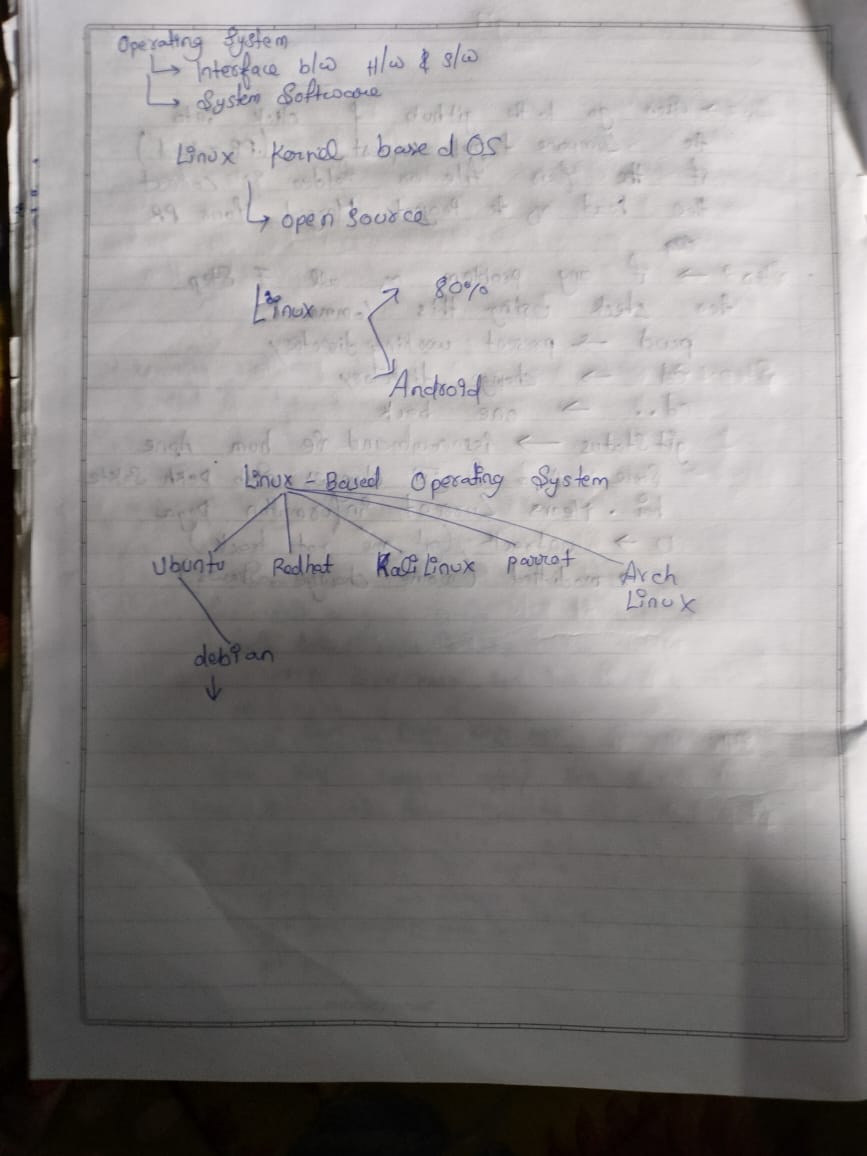 Operating System
↳ Interface b/w H/w & S/w
↳ System Software
Linux : Kernel - based OS
↳ open source
Linux ↗ 80%
↘ Android
Linux - Based Operating System
Ubuntu Redhat Kali Linux parrot Arch
Linux
debian
↓